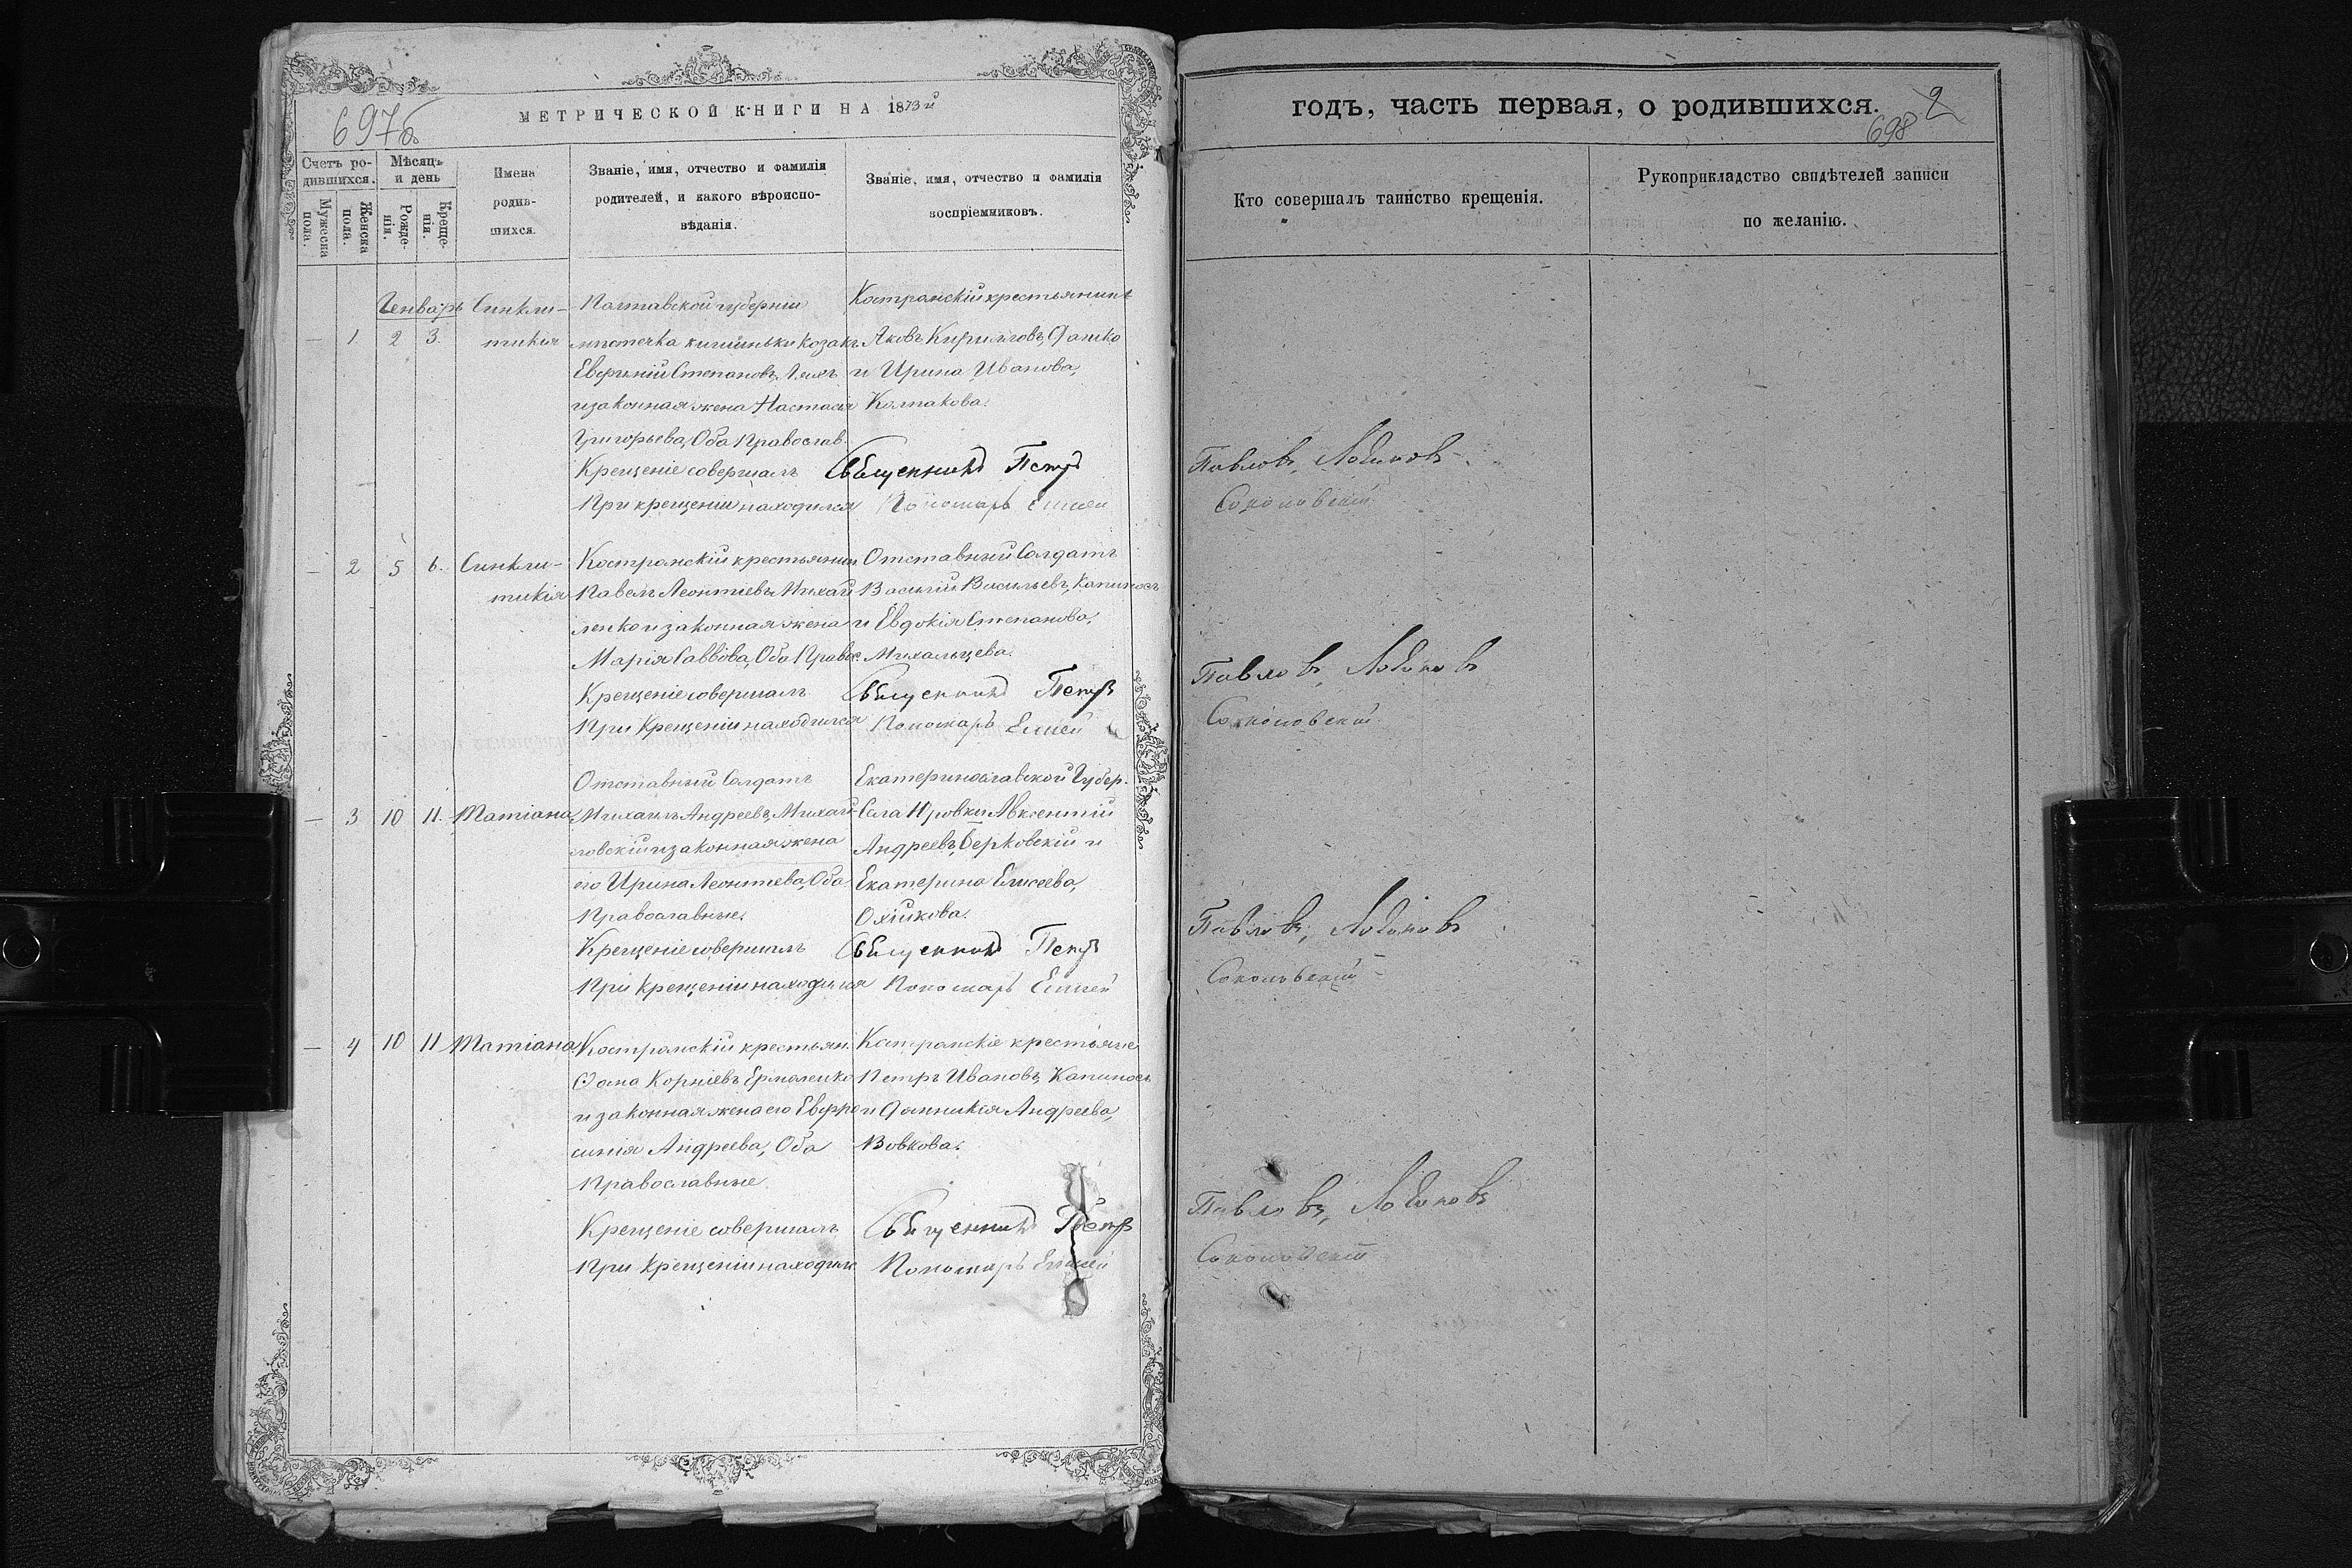 МЕТРИЧЕСКОЙ КНИГИ НА 1873й
697б
Счетъ ро-
дившихся.
Мужеска
пола.
Женска
пола.
Мѣсяцъ
и день
Рожде-
нія.
Креще-
нія.
Имена
родив-
шихся.
Званіе, имя, отчество и фамилія
родителей, и какого вѣроиспо-
вѣданія.
Званіе, имя, отчество и фамилія
воспріемниковъ.
Генварь Синкли- Полтавской губерніи Костромскій крестьянинъ
— 1 2 3. тикія мистечка Козакъ Яковъ Кириловъ
Степановъ и Ирина Иванова,
и законная жена Настасія Колпакова.
Григорьева, Оба Православ.
Крещеніе совершалъ Священникъ Петръ
При крещеніи находился Пономарь Елисей
— 2 5 6. Синкли- Костромскій крестьянин Отставный Солдатъ
тикія Павелъ Леонтіевъ Михай Василій Васильевъ, Капиносъ
ленко и законная жена и Евдокія Степанова,
Марія Саввова, Оба Правос. Михальцева.
Крещеніе совершалъ Священникъ Петръ
При Крещеніи находился Пономарь Елисей
Отставный Солдатъ Екатеринославской Губер.
— 3 10 11. Татіана Михаилъ Андреевъ, Михай- Села Авксентій
ловскій и законная жена Андреевъ, Берковскій и
его Ирина Леонтіева, Оба Екатерина Елисеева,
Православные.
Крещеніе совершалъ Священникъ Петръ
При Крещеніи находился Пономарь Елисей
— 4 10 11 Татіана Костромскій крестьян. Костромскіе крестьяне
Ѳома Корніевъ Ермоленко Петръ Ивановъ, Капиносъ
и законная жена его Евфро и Домникія Андреева,
синія Андреева, Оба Вовкова.
Православные
Крещеніе совершалъ Священникъ Петръ
При Крещеніи находился Пономарь Елисей
годъ, часть первая, о родившихся.
2
698
Кто совершалъ таинство крещенія.
Рукоприкладство свидѣтелей записи
по желанію.
Павловъ, Лобиковъ
Соколовскій
Павловъ, Лобиковъ
Соколовскій
Павловъ, Лобиковъ
Соколовскій
Павловъ, Лобиковъ
Соколовскій